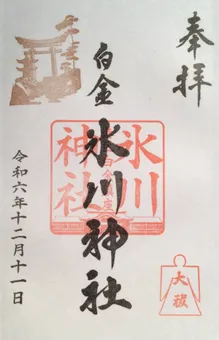 奉拝
白金
氷川神社
氷川神社
大祓
令和六年十二月十一日